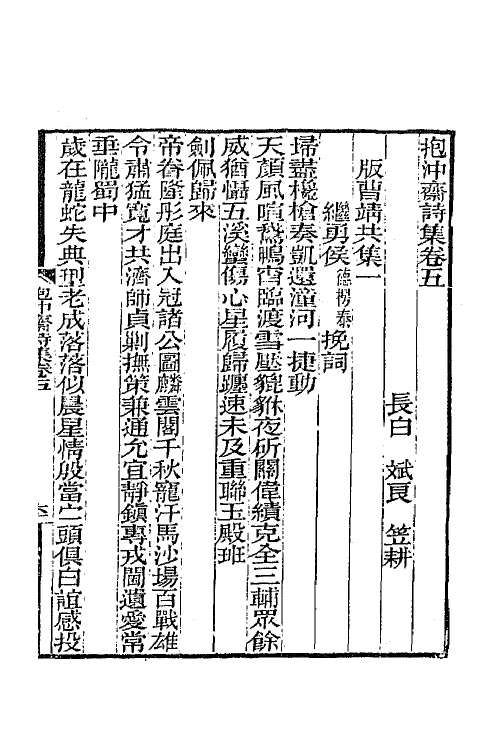 抱沖齋詩集卷五
長白　斌良　笠耕
版曹靖共集一
繼勇侯德楞泰挽詞
埽盡欃槍奏凱還潼河一捷動
天顏風暄鵞鸛宵臨渡雪壓貔貅夜斫關偉績克全三輔眾餘
威猶懾五溪蠻傷心星履歸躔速未及重聯玉殿班
劍佩歸來
帝眷隆彤庭出入冠諸公圖麟雲閣千秋寵汗馬沙場百戰雄
令肅猛寬才共濟師貞剿撫策兼通允宜靜鎮專戎閫遺愛常
垂隴蜀中
歲在龍蛇失典型老成落落似晨星情殷當宁頭俱白誼感投
抱沖齋詩集卷五